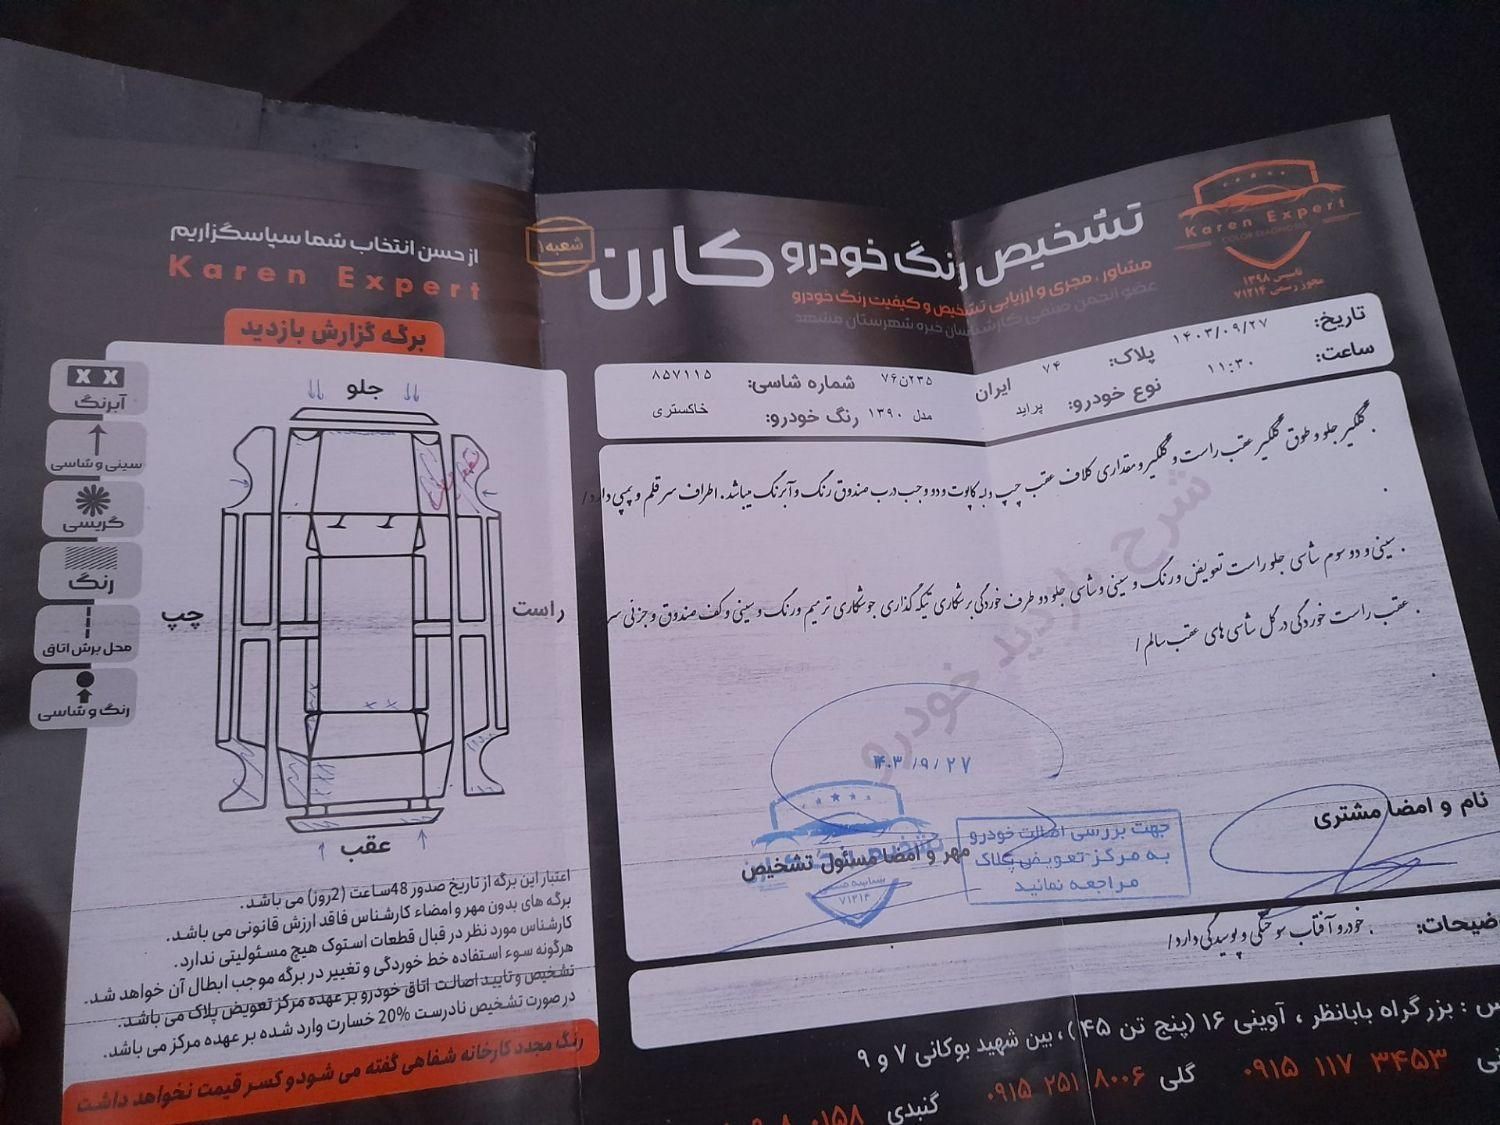 Karen Expert
COLOR DIAGNOSIS
تاسیس ۱۳۹۸
مجوز رسمی ۷۱۲۱۴
تشخیص رنگ خودرو کارن
شعبه ۱
مشاور ، مجری و ارزیابی تشخیص و کیفیت رنگ خودرو
عضو انجمن صنفی کارشناسان خبره شهرستان مشهد
تاریخ: ۱۴۰۳/۰۹/۲۷ پلاک: ۷۴ ایران ۲۳۵ن۷۶ شماره شاسی: ۸۵۷۱۱۵
ساعت: ۱۱:۳۰ نوع خودرو: پراید مدل ۱۳۹۰ رنگ خودرو: خاکستری
. گلگیر جلو و طوق گلگیر عقب راست و گلگیر و مقداری کلاف عقب چپ و لبه کاپوت و دو وجب درب صندوق رنگ و آبرنگ میباشد. اطراف سر قلم و پمپی دارد/
. سینی و دو سوم شاسی جلو راست تعویض و رنگ و سینی و شاسی جلو دو طرف خوردگی برشکاری تیکه گذاری جوشکاری ترمیم و رنگ و سینی و کف صندوق و جزئی سر
. عقب راست خوردگی در کل شاسی های عقب سالم/
شرح بازدید خودرو
۱۴۰۳/۹/۲۷
نام و امضا مشتری
مهر و امضا مسئول تشخیص
۷۱۲۱۴
جهت بررسی اصالت خودرو
به مرکز تعویض پلاک
مراجعه نمائید
ضیحات: . خودرو آفتاب سوختگی و پوسیدگی دارد/
س : بزرگراه بابانظر ، آوینی ۱۶ (پنج تن ۴۵) ، بین شهید بوکانی ۷ و ۹
نی ۰۹۱۵ ۱۱۷ ۳۴۵۳ گلی ۰۹۱۵ ۲۵۱ ۸۰۰۶ گنبدی
از حسن انتخاب شما سپاسگزاریم
Karen Expert
برگه گزارش بازدید
X X
آبرنگ
سینی و شاسی
گریسی
رنگ
محل برش اتاق
رنگ و شاسی
جلو
راست
چپ
عقب
اعتبار این برگه از تاریخ صدور 48ساعت (2روز) می باشد.
برگه های بدون مهر و امضاء کارشناس فاقد ارزش قانونی می باشد.
کارشناس مورد نظر در قبال قطعات استوک هیچ مسئولیتی ندارد.
هرگونه سوء استفاده خط خوردگی و تغییر در برگه موجب ابطال آن خواهد شد.
تشخیص و تایید اصالت اتاق خودرو بر عهده مرکز تعویض پلاک می باشد.
در صورت تشخیص نادرست 20% خسارت وارد شده بر عهده مرکز می باشد.
رنگ مجدد کارخانه شفاهی گفته می شود و کسر قیمت نخواهد داشت